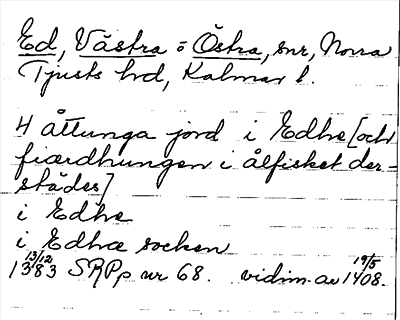 Ed, Västra o Östra, snr, Norra
Tjusts hd, Kalmar l.
4 åttunga jord i Edhe [och
fiærdhungen i ålfisket der-
städes]
i Edhe
i Edhæ socken
13/12 1383 SRPp nr 68. vidim. av 19/5 1408.